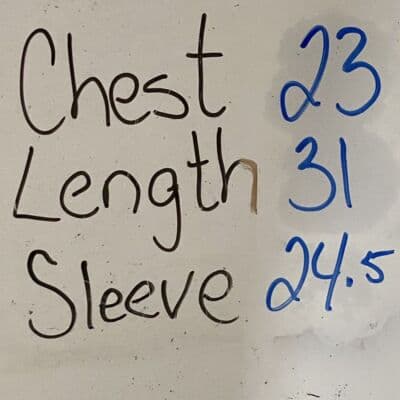 Chest 23
Length 31
Sleeve 24.5